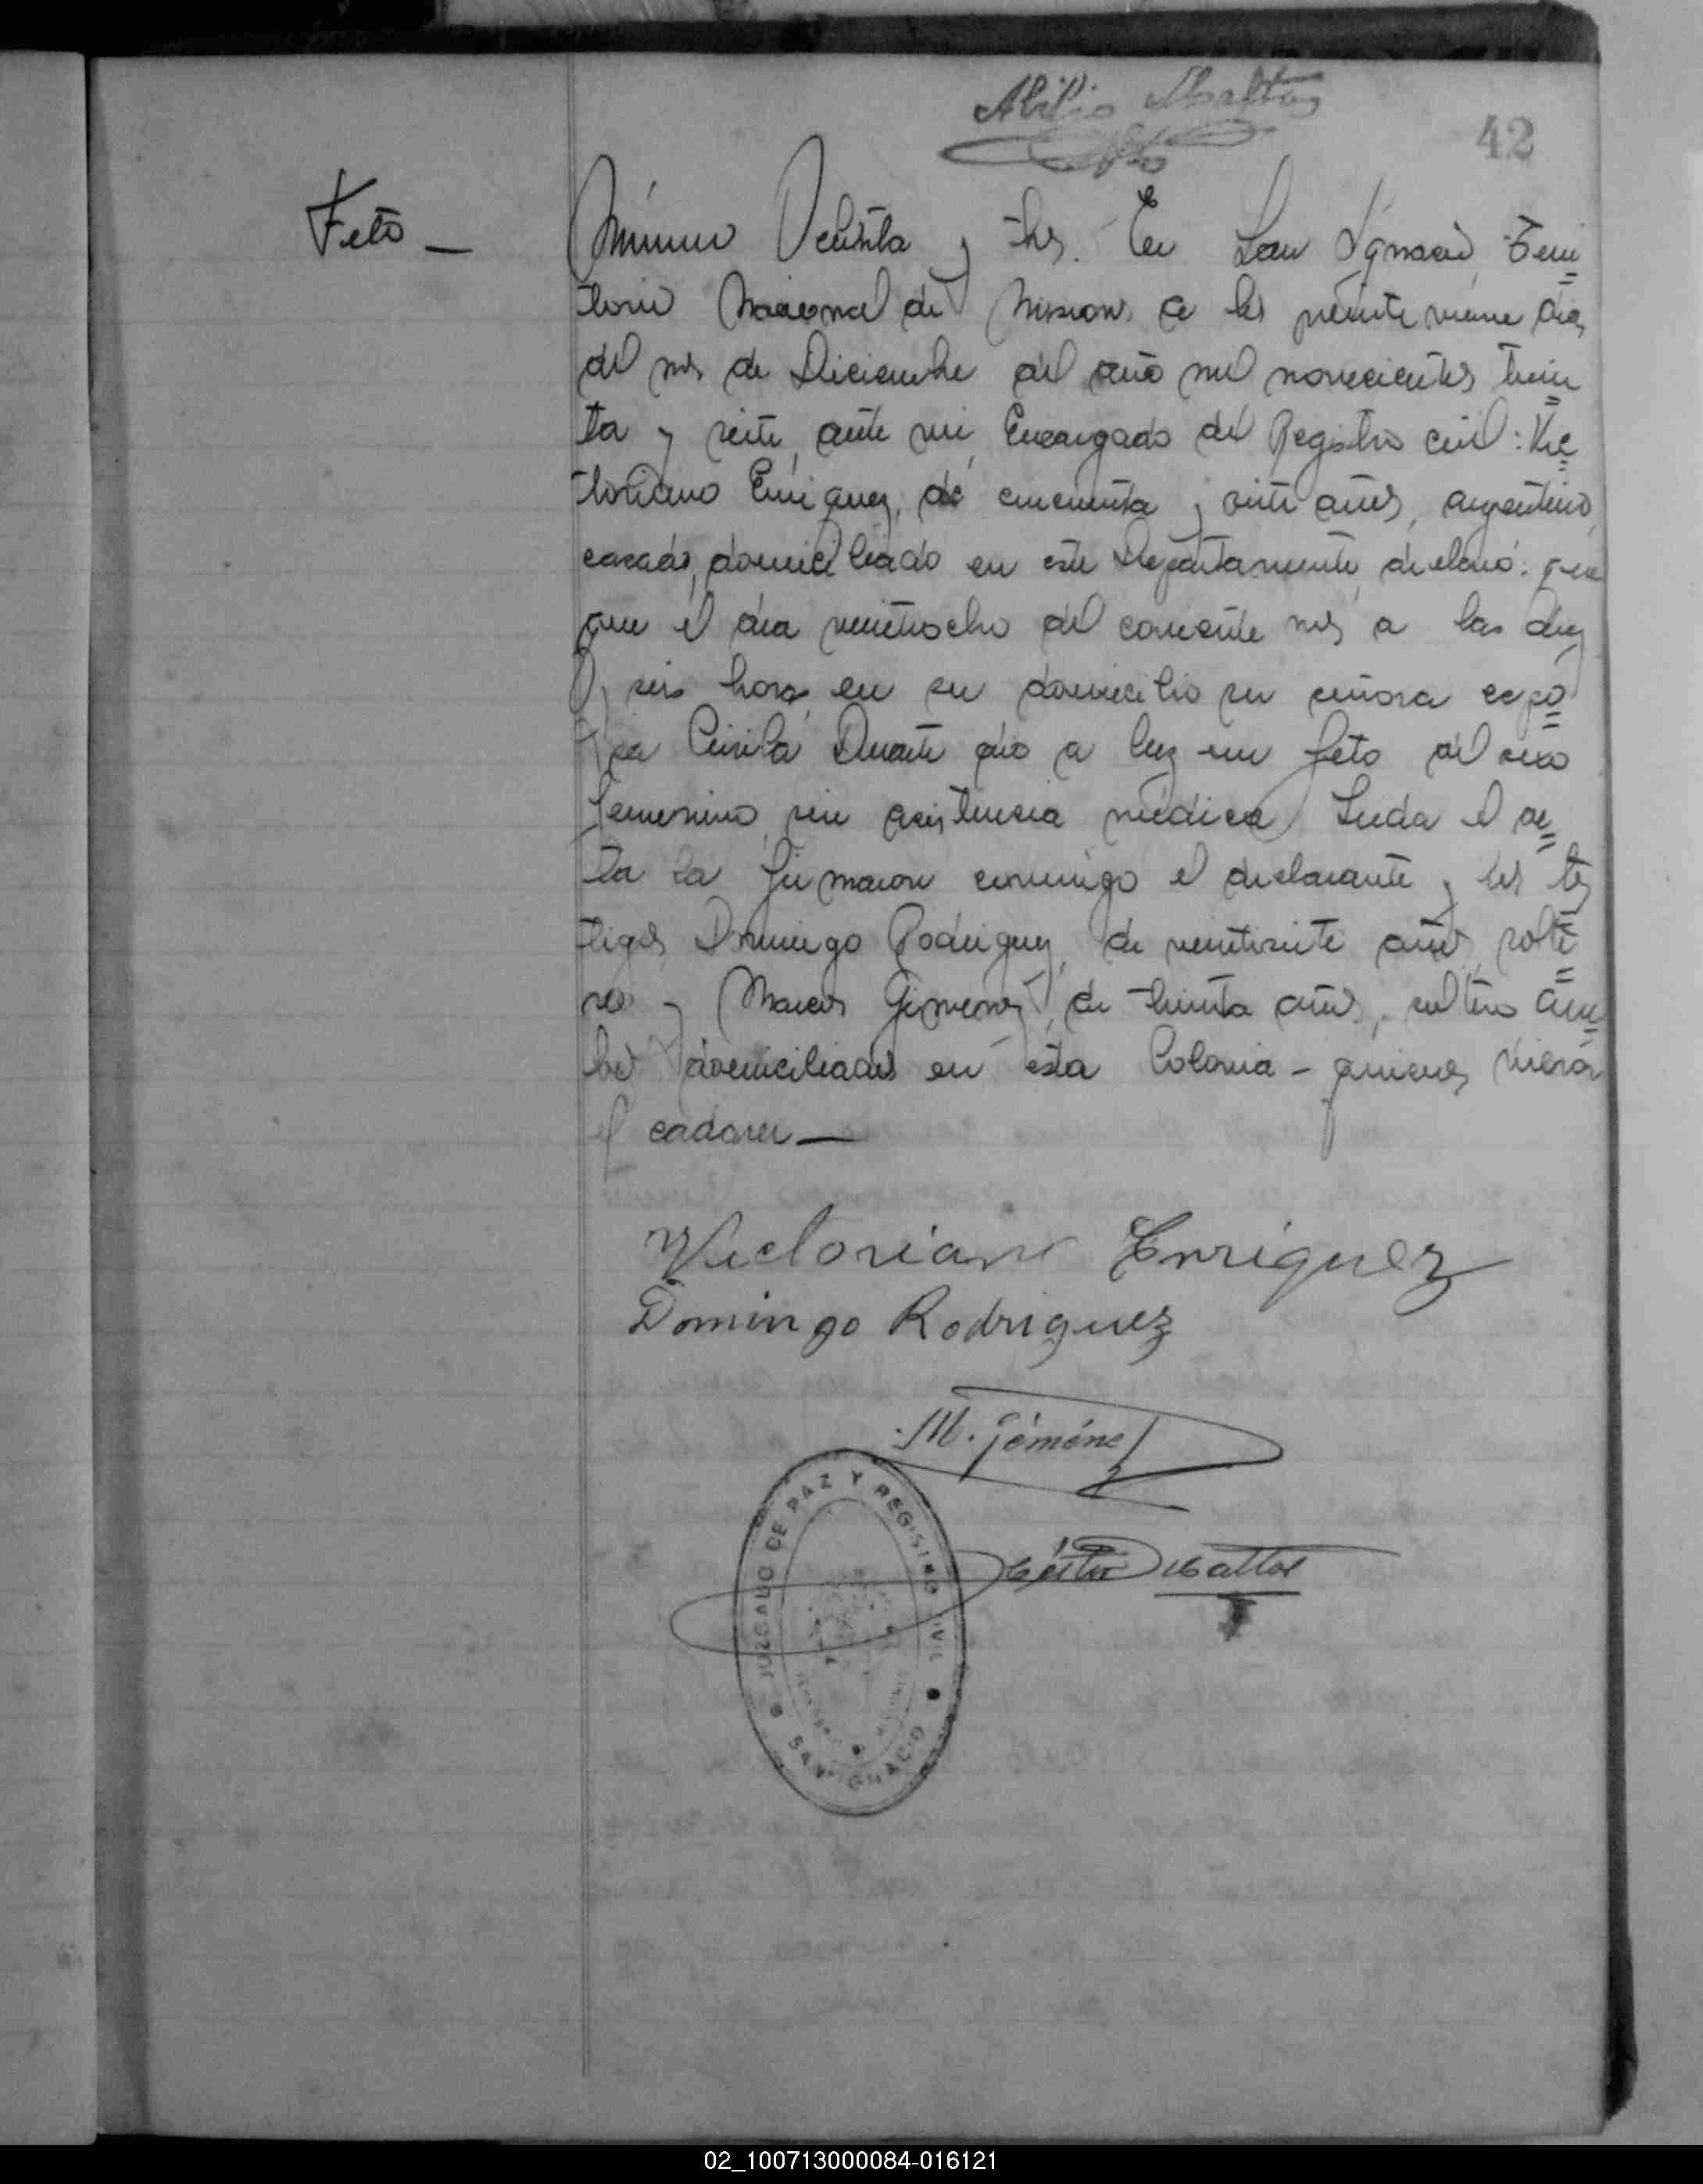 Abilio Mattos
42
Feto —
Número Ochenta y tres. En San Ygnacio, Terri=
torio Nacional de Misiones a los veinte nueve dias
del mes de Diciembre del año mil novecientos trein=
ta y siete, ante mi, Encargado del Registro civil: Vic=
toriano Enriquez, de cincuenta y siete años, argentino,
casado, domiciliado en este Departamento, declaró: que
que el dia veintiocho del corriente mes, a las diez
y seis horas, en su domicilio su señora espo=
sa Cirila Duarte dió a luz un feto del sexo
femenino, sin asistencia médica. Leida el ac=
ta la firmaron conmigo el declarante y los tes=
tigos Domingo Rodriguez, de veintisiete años, solte=
ro y Marcos Gimenez, de treinta años, soltero am=
bos domiciliados en esta Colonia - quienes vieron
el cadaver —
Victoriano Enriquez
Domingo Rodriguez
M. Jiménez
Héctor Mattos
JUZGADO DE PAZ Y REGISTRO CIVIL
SAN IGNACIO
02_100713000084-016121